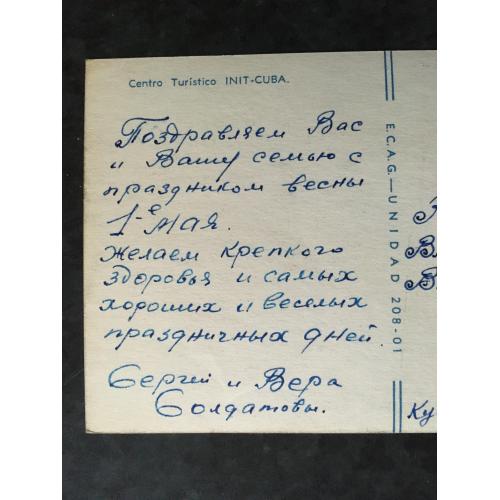 Centro Turístico INIT-CUBA.
Поздравляем Вас
и Вашу семью с
праздником весны
1-е мая.
Желаем крепкого
здоровья и самых
хороших и веселых
праздничных дней.
Сергей и Вера
Солдатовы.
E.C.A.G.—UNIDAD 208-01
Ку